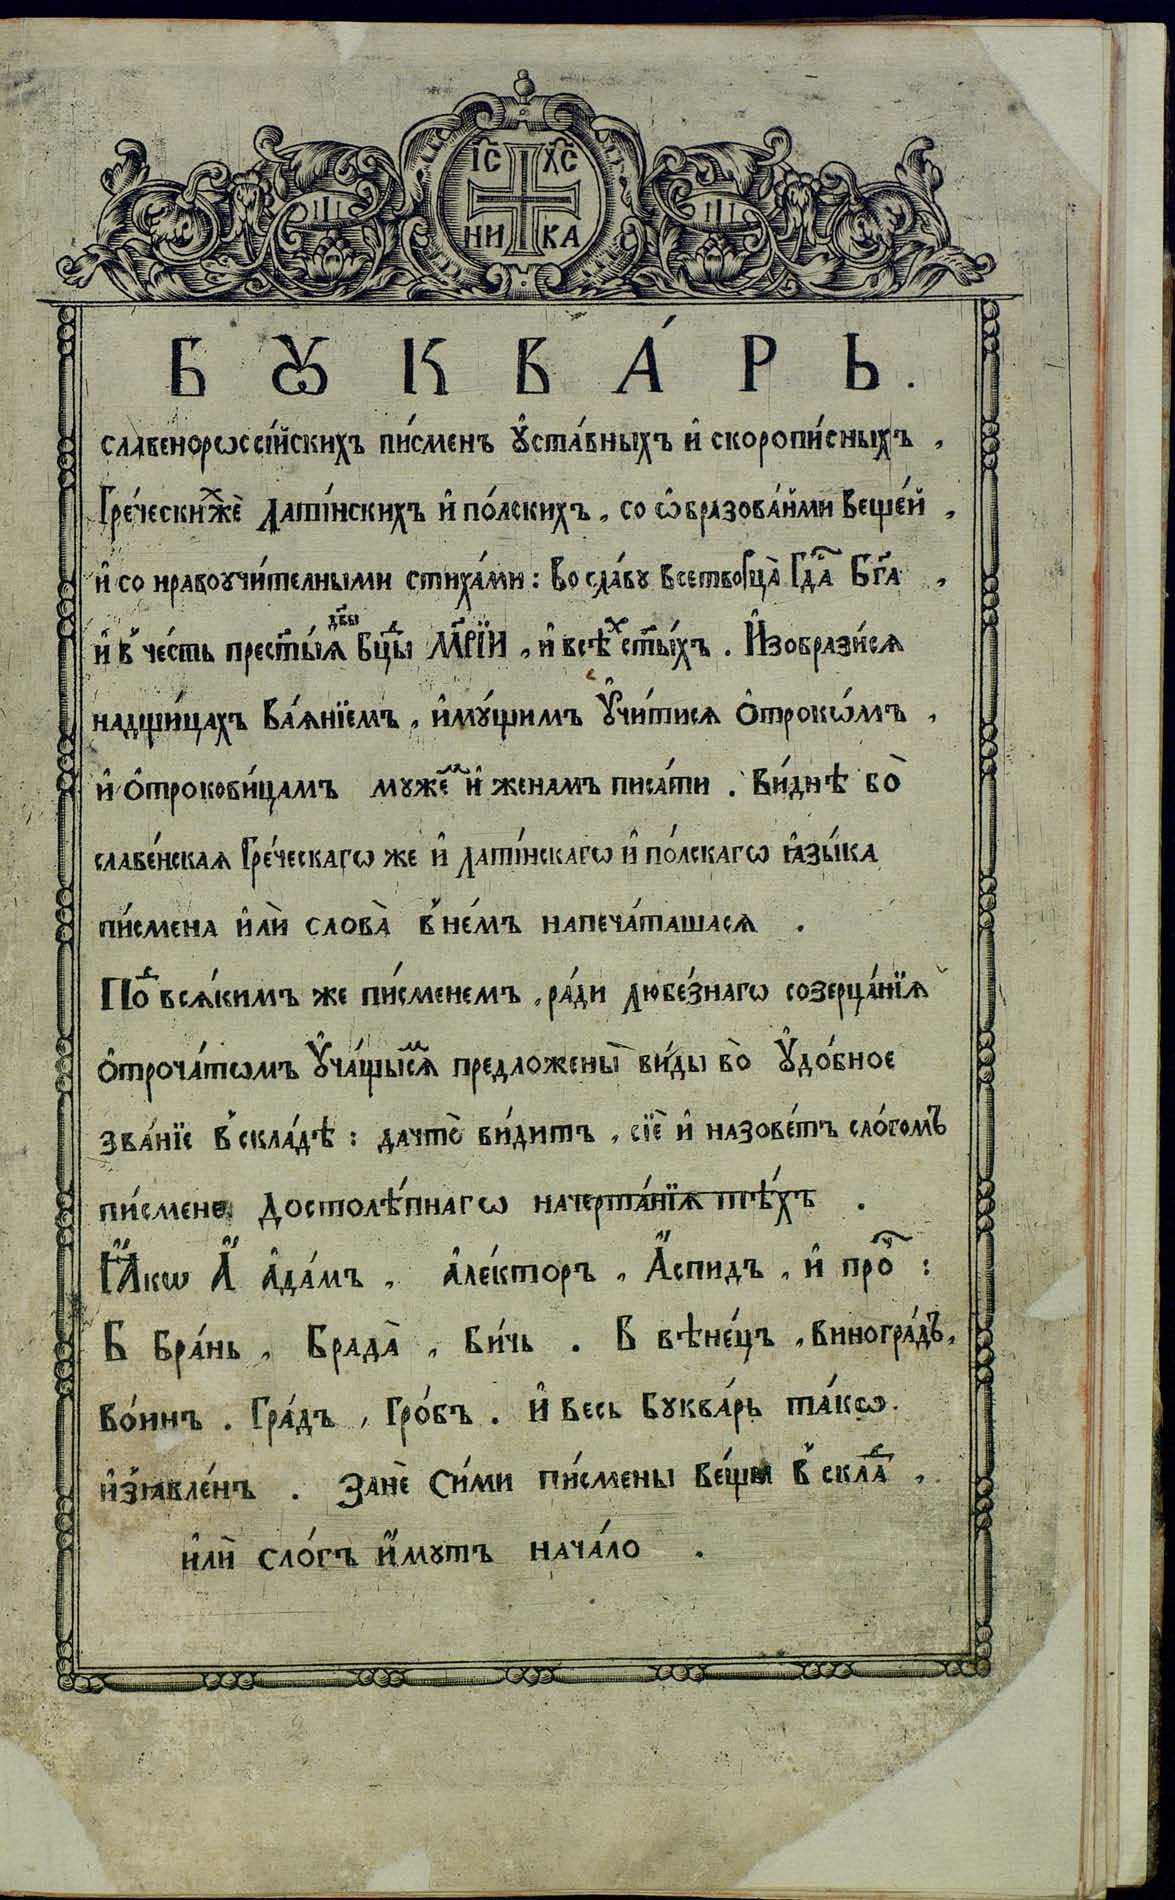 І҃С Х҃С
НИ КА
БꙊКВА́РЬ.
славенорѡссі́йскихъ пи́сменъ ᲂу҆ста́вныхъ и҆ скоропи́сныхъ ,
Гре́ческиⷯжѐ латі́нскихъ и҆ по́лскихъ , со ѡ҆бразова́нми веще́й ,
и҆ со нравоꙋчи́телными стиха́ми : во сла́вꙋ всетворца̀ Гдⷭ҇а Бг҃а ,
и҆ в̾ че́сть прест҃ы́ѧ дв҃ы Бцⷣы МР҃ІИ , и҆ всѣⷯ ст҃ы́хъ . И҆зобрази́сѧ
надщи́цахъ ва́ѧнїемъ , и҆мꙋ́щимъ ᲂу҆чи́тисѧ ѻ҆трокѡ́мъ ,
и҆ ѻ҆трокови́цамъ мꙋжеⷨ и҆ женамъ писа́ти . ви́днѣ бо̀
славе́нскаѧ Гре́ческагѡ же и҆ латі́нскагѡ и҆ по́лскагѡ ꙗ҆зы́ка
пи́смена и҆лѝ слова̀ в̾ не́мъ напеча́ташасѧ .
Поⷣ всѧ́кимъ же пи́сменемъ , ра́ди любе́знагѡ созерца́нїѧ
ѻ҆троча́тѡмъ ᲂу҆ча́щыⷨсѧ предложены̀ ви́ды во̀ ᲂу҆до́бное
зва́нїе в̾ скла́дѣ : дачто̀ ви́дитъ , сїѐ и҆ назове́тъ сло́гомъ
пи́смене достолѣ́пнагѡ начерта́нїѧ тѣ́хъ .
Ꙗ҆́кѡ А҆́ а҆да́мъ , а҆ле́кторъ , А҆́спидъ , и҆ проⷱ҇ :
Б бра́нь , Брада̀ , би́чь . В вѣне́цъ , виногра́дъ ,
во́инъ . Гра́дъ , Гро́бъ . и҆ весь Буква́рь та́кѡ
и҆з̾ꙗвле́нъ . Занѐ си́ми пи́смены ве́щы в̾ склаⷣ ,
и҆лѝ сло́гъ и҆́мꙋтъ нача́ло .